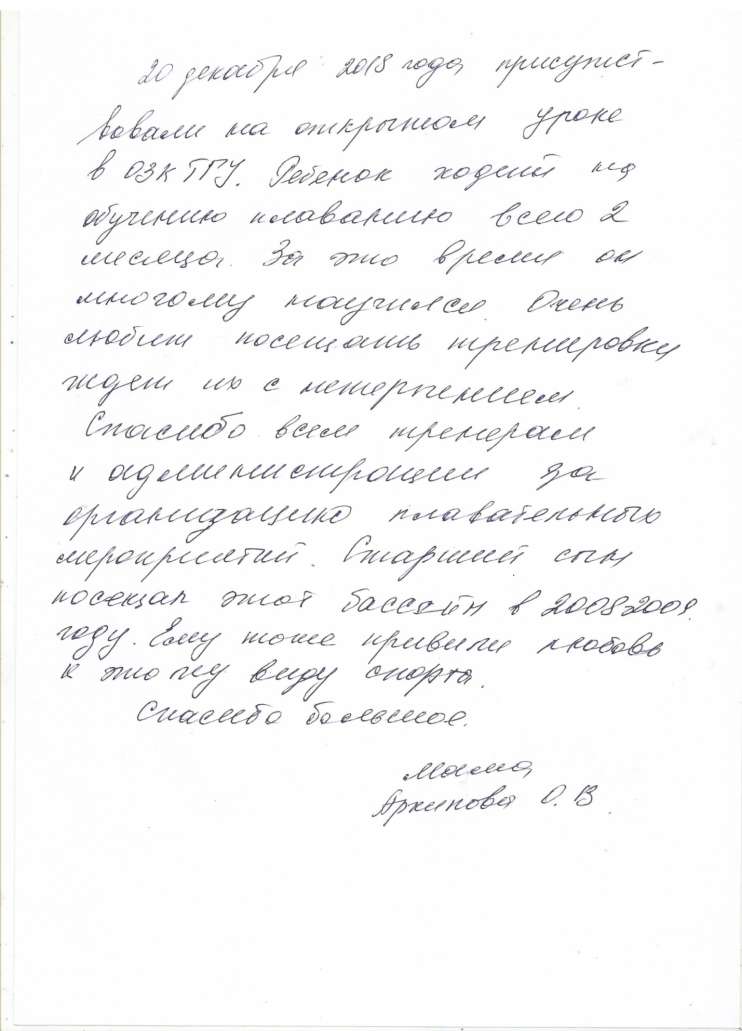 20 декабря 2018 года присутст-
вовали на открытом уроке
в ОЗК ТГУ. Ребенок ходит на
обучению плаванию всего 2
месяца. За это время он
многому научился. Очень
любит посещать тренировки
ждет их с нетерпением.
Спасибо всем тренерам
и администрации за
организацию плавательных
мероприятий. Старший сын
посещал этот бассейн в 2008-2009.
году. Ему тоже привили любовь
к этому виду спорта.
Спасибо большое.
Мама
Архипова О.В